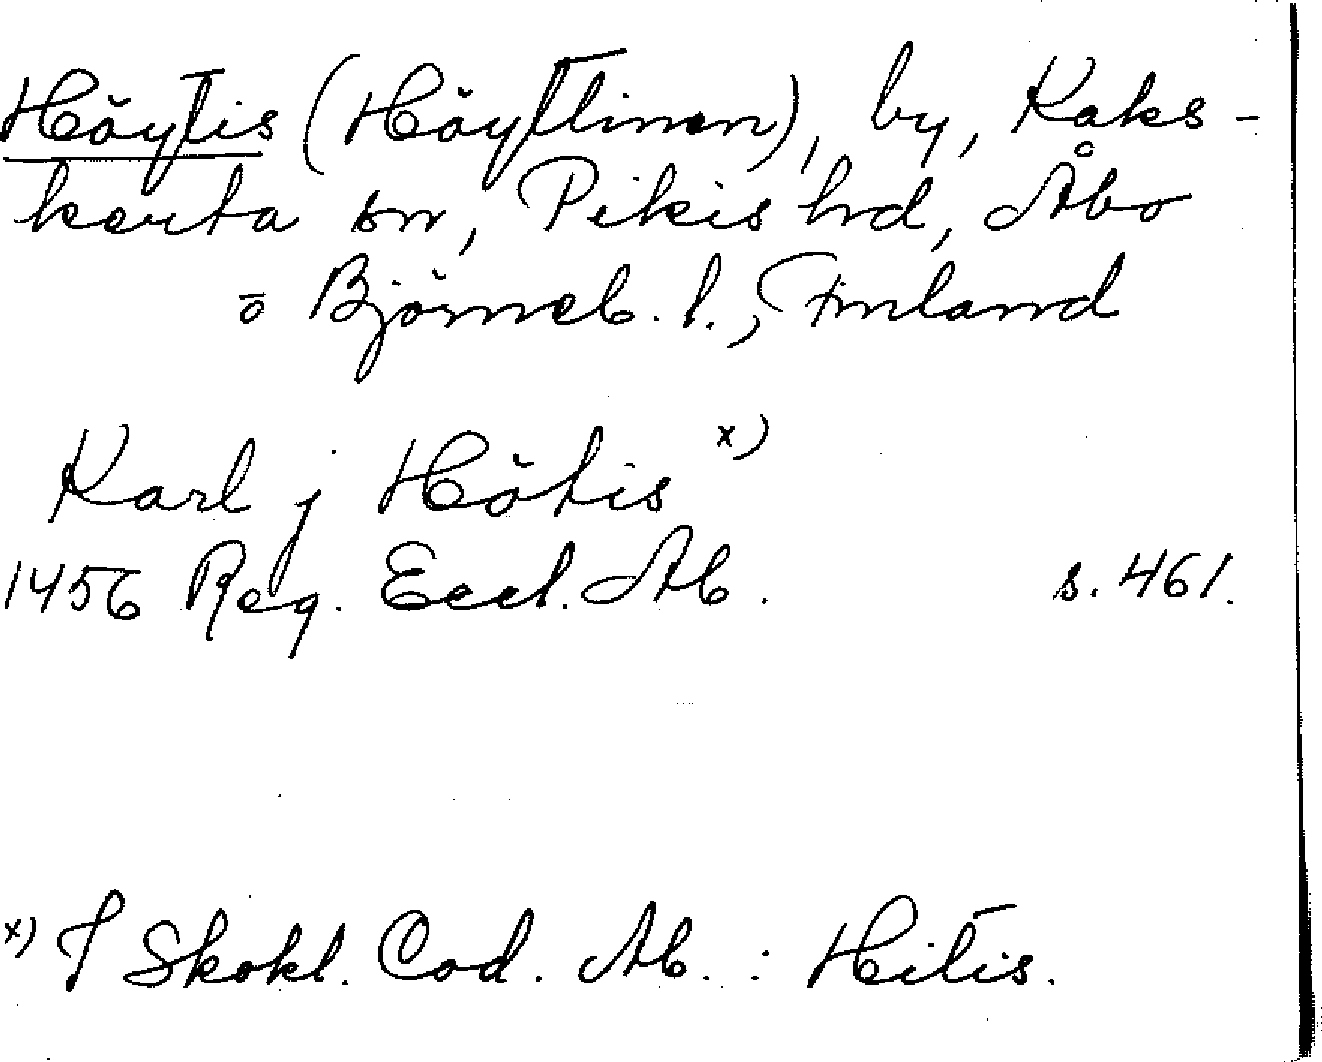 Höytis (Höytlinen), by, Kaks-
kerta sn, Pikis hrd, Åbo
o Björneb. l., Finland
Karl j Hötis x)
1456 Reg. Eccl. Ab. s. 461.
x) I Skokl. Cod. Ab. : Hitis.